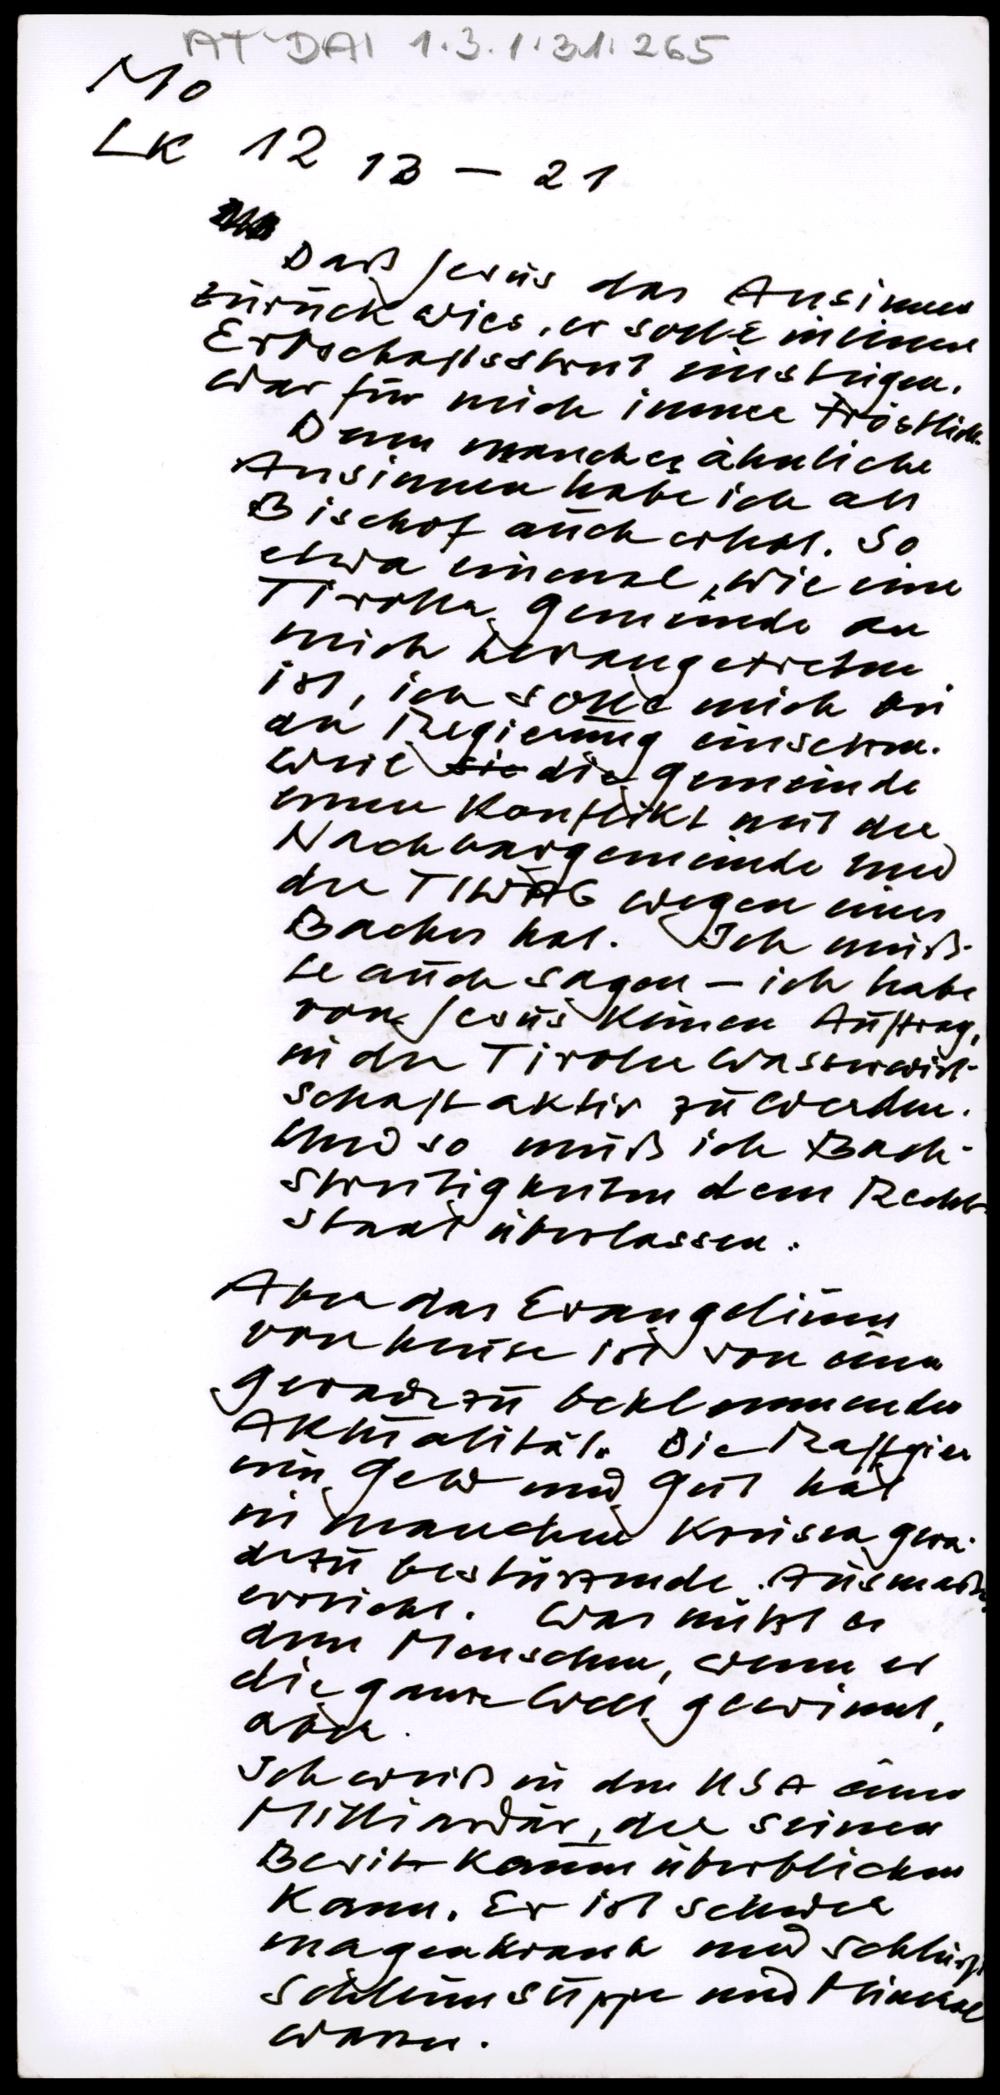 AT-DAI 1.3.1.31.265
Mo
LK 12 13 - 21
Daß Jesus das Ansinnen
zurückwies, er solle in einen
Erbschaftsstreit einsteigen,
war für mich immer tröstlich.
Denn manches ähnliche
Ansinnen habe ich als
Bischof auch erhal. So
etwa einmal, wie eine
Tiroler Gemeinde an
mich herangetreten
ist, ich solle mich bei
der Regierung einsetzen.
weil sie die Gemeinde
einen Konflikt mit der
Nachbargemeinde und
der TIWAG wegen eines
Baches hat. Ich muß-
te auch sagen - ich habe
von Jesus keinen Auftrag,
in der Tiroler Wasserwirt-
schaft aktiv zu werden.
Und so muß ich Bach-
streitigkeiten dem Rechts-
staat überlassen.
Aber das Evangelium
von heute ist von einer
geradezu beklemmenden
Aktualität. Die Raffgier
um Geld und Gut hat
in manchen Kreisen gera-
dezu bestürzende Ausmaße
erreicht. Was nützt es
dem Menschen, wenn er
die ganze Welt gewinnt,
aber.
Ich weiß in den USA einen
Milliardär, der seinen
Besitz kaum überblicken
kann. Er ist schwer
magenkrank und schlürft
Schleimsuppe und Mineral
wasser.